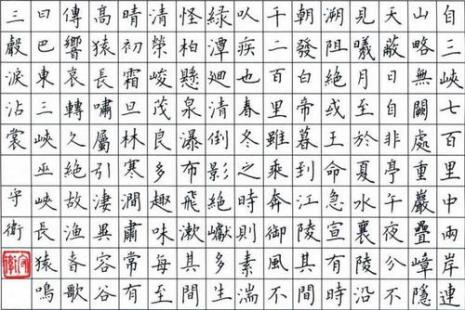 自三峽七百里中兩岸連
山略無闕處重巖疊嶂隱
天蔽日自非亭午夜分不
見曦月至於夏水襄陵沿
溯阻絕或王命急宣有時
朝發白帝暮到江陵其間
千二百里雖乘奔御風不
以疾也春冬之時則素湍
綠潭迴清倒影絕巘多生
怪柏懸泉瀑布飛漱其間
清榮峻茂良多趣味每至
晴初霜旦林寒澗肅常有
高猿長嘯屬引淒異空谷
傳響哀轉久絕故漁者歌
曰巴東三峽巫峽長猿鳴
三聲淚沾裳 守衛